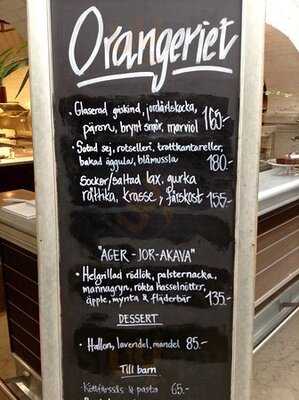 Orangeriet
• Glaserad griskind, jordärtskocka,
päron, brynt smör, marviol 165-
• Sotad sej, rotselleri, trattkantareller,
bakad äggula, blåmussla 180.-
Socker/saltad lax, gurka
rättika, krasse, färskost 155-
"AGER-JOR-AKAVA"
• Helgrillad rödlök, palsternacka,
mannagryn, rökta hasselnötter,
äpple, mynta & fläderbär 135.-
DESSERT
• Hallon, lavendel, mandel 85.-
Till barn
Köttfärssås & pasta 65.-